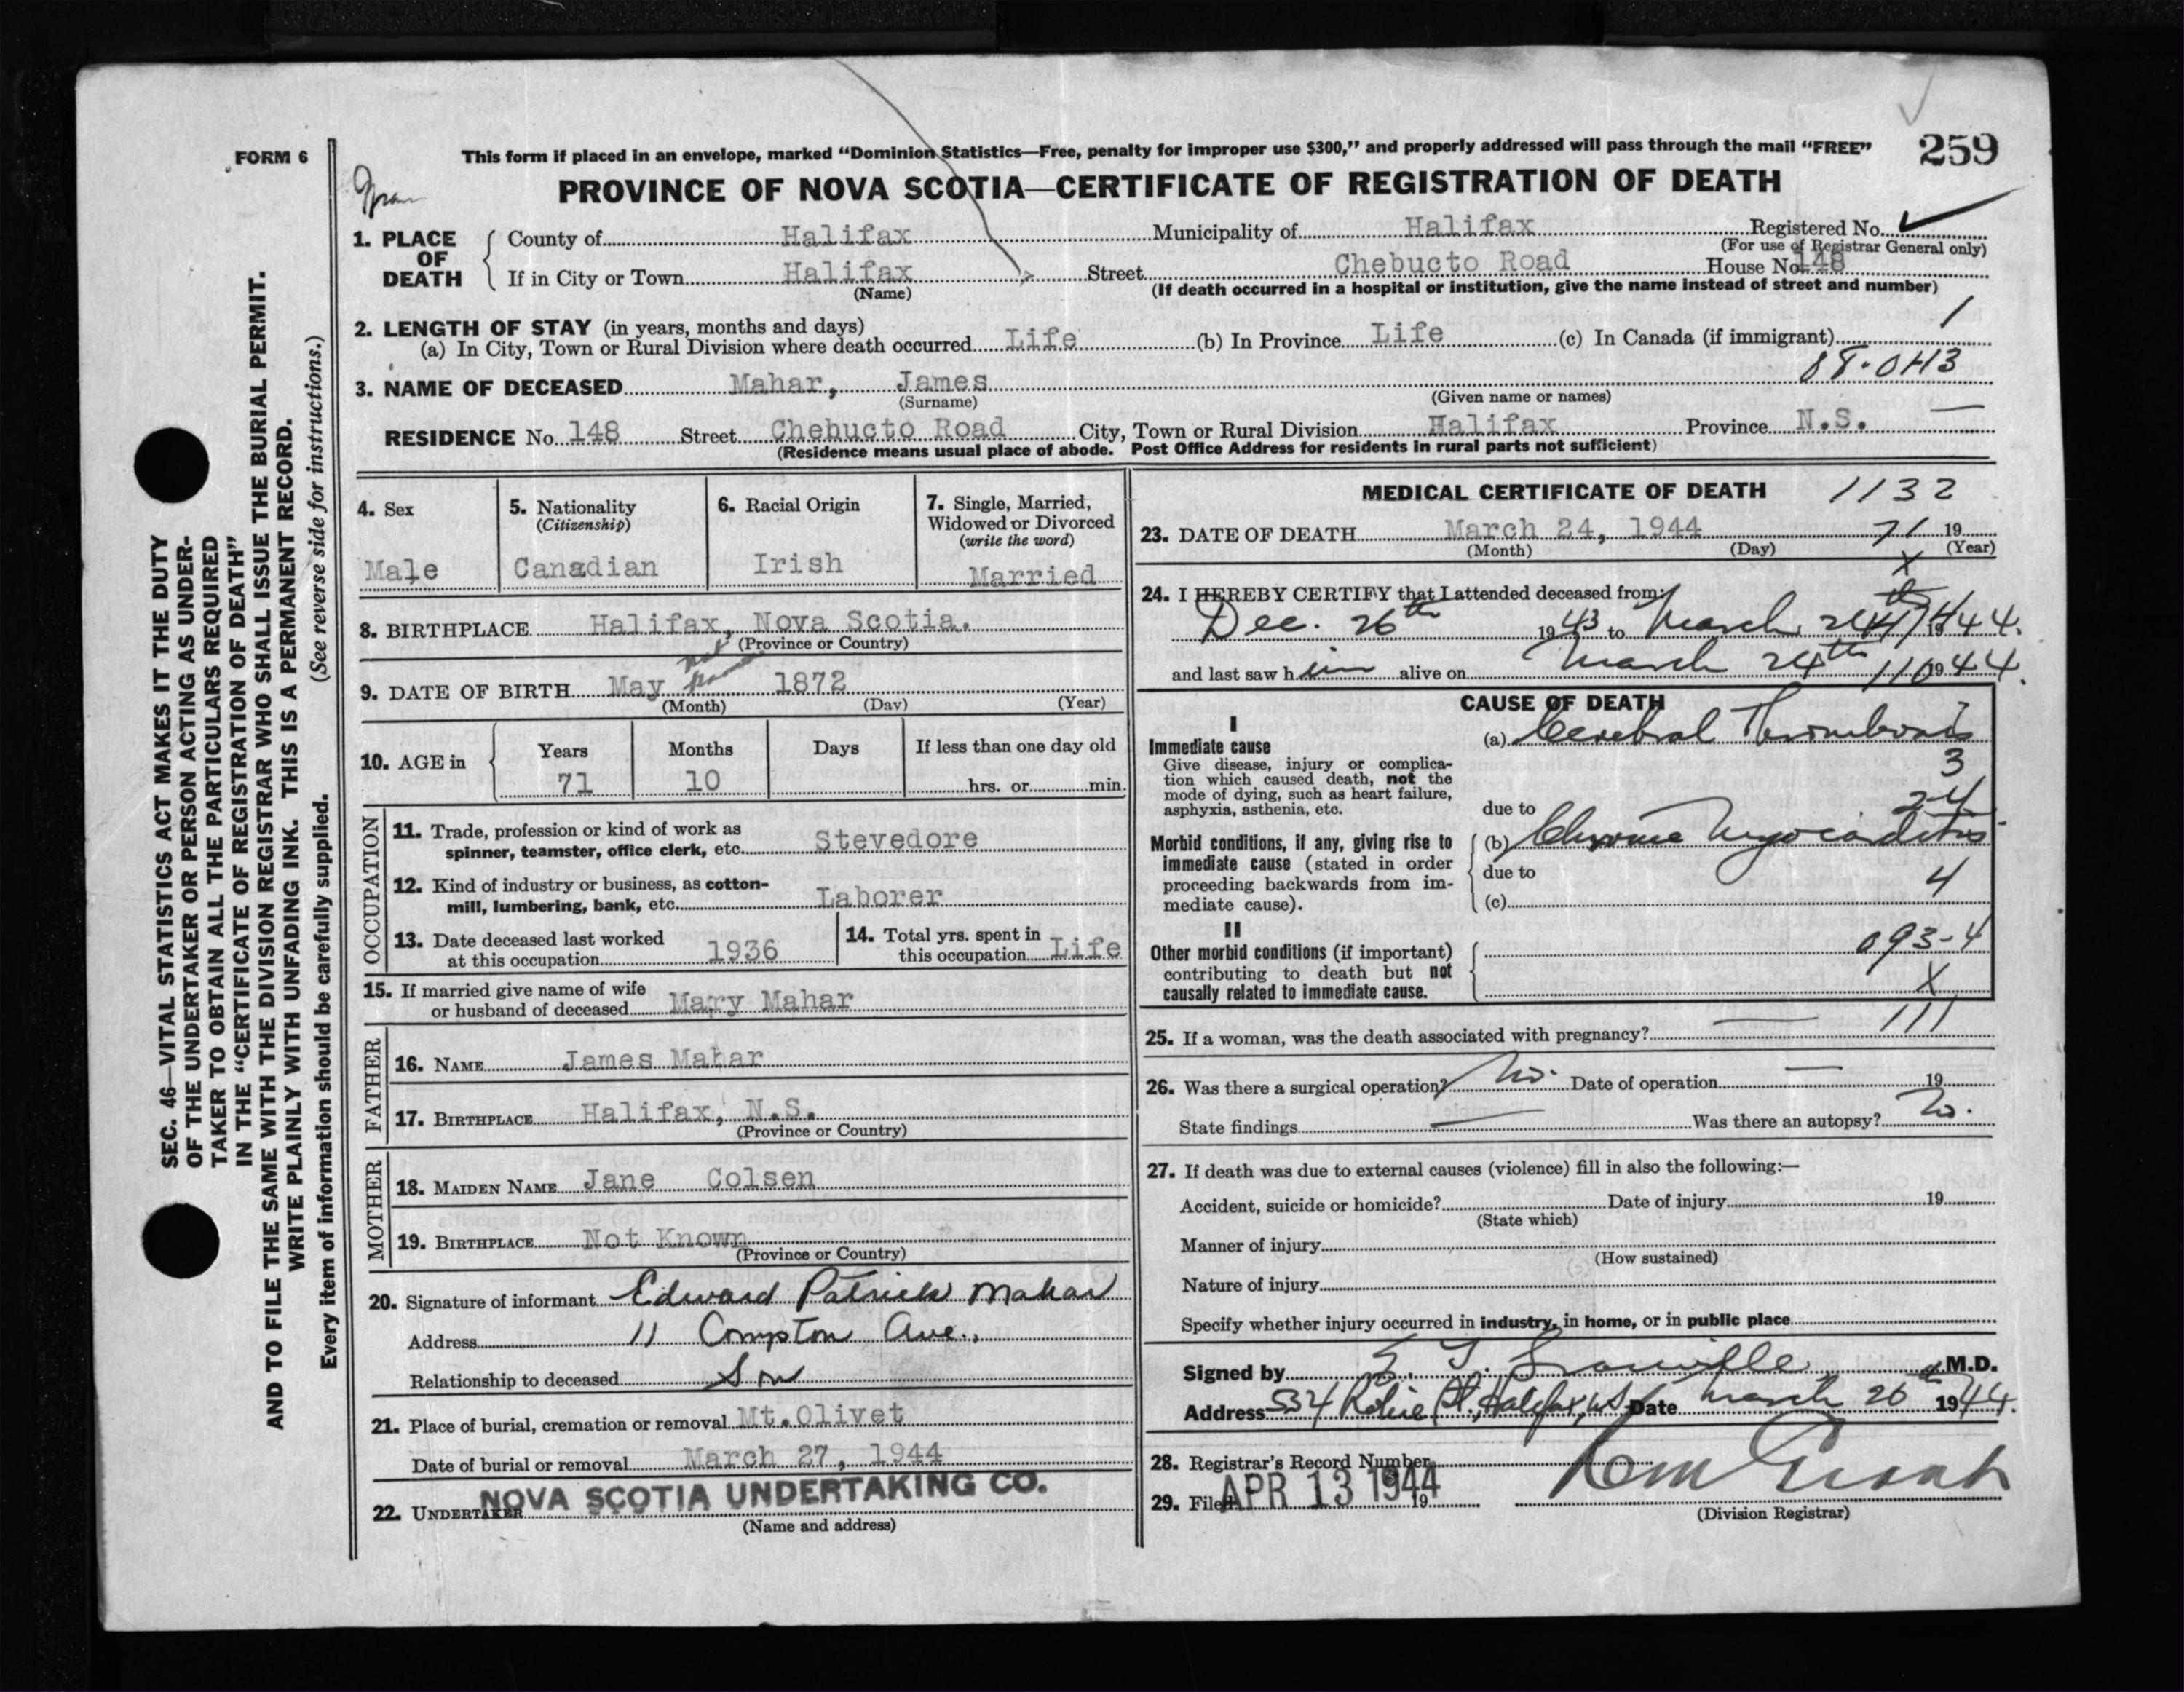 FORM 6
This form if placed in an envelope, marked “Dominion Statistics—Free, penalty for improper use $300,” and properly addressed will pass through the mail “FREE”
259
PROVINCE OF NOVA SCOTIA—CERTIFICATE OF REGISTRATION OF DEATH
SEC. 46—VITAL STATISTICS ACT MAKES IT THE DUTY
OF THE UNDERTAKER OR PERSON ACTING AS UNDER-
TAKER TO OBTAIN ALL THE PARTICULARS REQUIRED
IN THE “CERTIFICATE OF REGISTRATION OF DEATH”
AND TO FILE THE SAME WITH THE DIVISION REGISTRAR WHO SHALL ISSUE THE BURIAL PERMIT.
WRITE PLAINLY WITH UNFADING INK. THIS IS A PERMANENT RECORD.
Every item of information should be carefully supplied. (See reverse side for instructions.)
1. PLACE OF DEATH
County of Halifax Municipality of Halifax Registered No.
(For use of Registrar General only)
If in City or Town Halifax Street Chebucto Road House No. 148
(Name) (If death occurred in a hospital or institution, give the name instead of street and number)
2. LENGTH OF STAY (in years, months and days) 1
(a) In City, Town or Rural Division where death occurred Life (b) In Province Life (c) In Canada (if immigrant)
3. NAME OF DECEASED Mahar, James 88-0H3
(Surname) (Given name or names)
RESIDENCE No. 148 Street Chebucto Road City, Town or Rural Division Halifax Province N.S. —
(Residence means usual place of abode. Post Office Address for residents in rural parts not sufficient)
4. Sex
Male
5. Nationality
(Citizenship)
Canadian
6. Racial Origin
Irish
7. Single, Married,
Widowed or Divorced
(write the word)
Married
8. BIRTHPLACE Halifax, Nova Scotia.
(Province or Country)
not known
9. DATE OF BIRTH May 1872
(Month) (Day) (Year)
10. AGE in
Years Months Days If less than one day old
71 10 hrs. or min.
OCCUPATION
11. Trade, profession or kind of work as
spinner, teamster, office clerk, etc. Stevedore
12. Kind of industry or business, as cotton-
mill, lumbering, bank, etc. Laborer
13. Date deceased last worked
at this occupation 1936
14. Total yrs. spent in
this occupation Life
15. If married give name of wife
or husband of deceased Mary Mahar
FATHER
16. NAME James Mahar
17. BIRTHPLACE Halifax, N.S.
(Province or Country)
MOTHER
18. MAIDEN NAME Jane Colsen
19. BIRTHPLACE Not Known
(Province or Country)
20. Signature of informant Edward Patrick Mahar
Address 11 Compton Ave.,
Relationship to deceased Son
21. Place of burial, cremation or removal Mt.Olivet
Date of burial or removal March 27, 1944
22. UNDERTAKER NOVA SCOTIA UNDERTAKING CO.
(Name and address)
MEDICAL CERTIFICATE OF DEATH 1132
23. DATE OF DEATH March 24, 1944 71 19
(Month) (Day) (Year)
X
24. I HEREBY CERTIFY that I attended deceased from:
Dec. 26th 1943 to March 24th 1944.
and last saw him alive on March 24th 110 1944.
CAUSE OF DEATH
I
Immediate cause
Give disease, injury or complica-
tion which caused death, not the
mode of dying, such as heart failure,
asphyxia, asthenia, etc.
(a) Cerebral Thrombosis
3
24
due to
Morbid conditions, if any, giving rise to
immediate cause (stated in order
proceeding backwards from im-
mediate cause).
(b) Chronic Myocarditis
due to 4
(c)
II
Other morbid conditions (if important)
contributing to death but not
causally related to immediate cause.
093-4
X
25. If a woman, was the death associated with pregnancy? — 111
26. Was there a surgical operation? No. Date of operation — 19
State findings — Was there an autopsy? No.
27. If death was due to external causes (violence) fill in also the following:—
Accident, suicide or homicide? Date of injury 19
(State which)
Manner of injury
(How sustained)
Nature of injury
Specify whether injury occurred in industry, in home, or in public place
Signed by M.D.
Address 534 Robie St., Halifax, N.S. Date March 26th 1944.
28. Registrar's Record Number
29. Filed APR 13 1944 19
(Division Registrar)